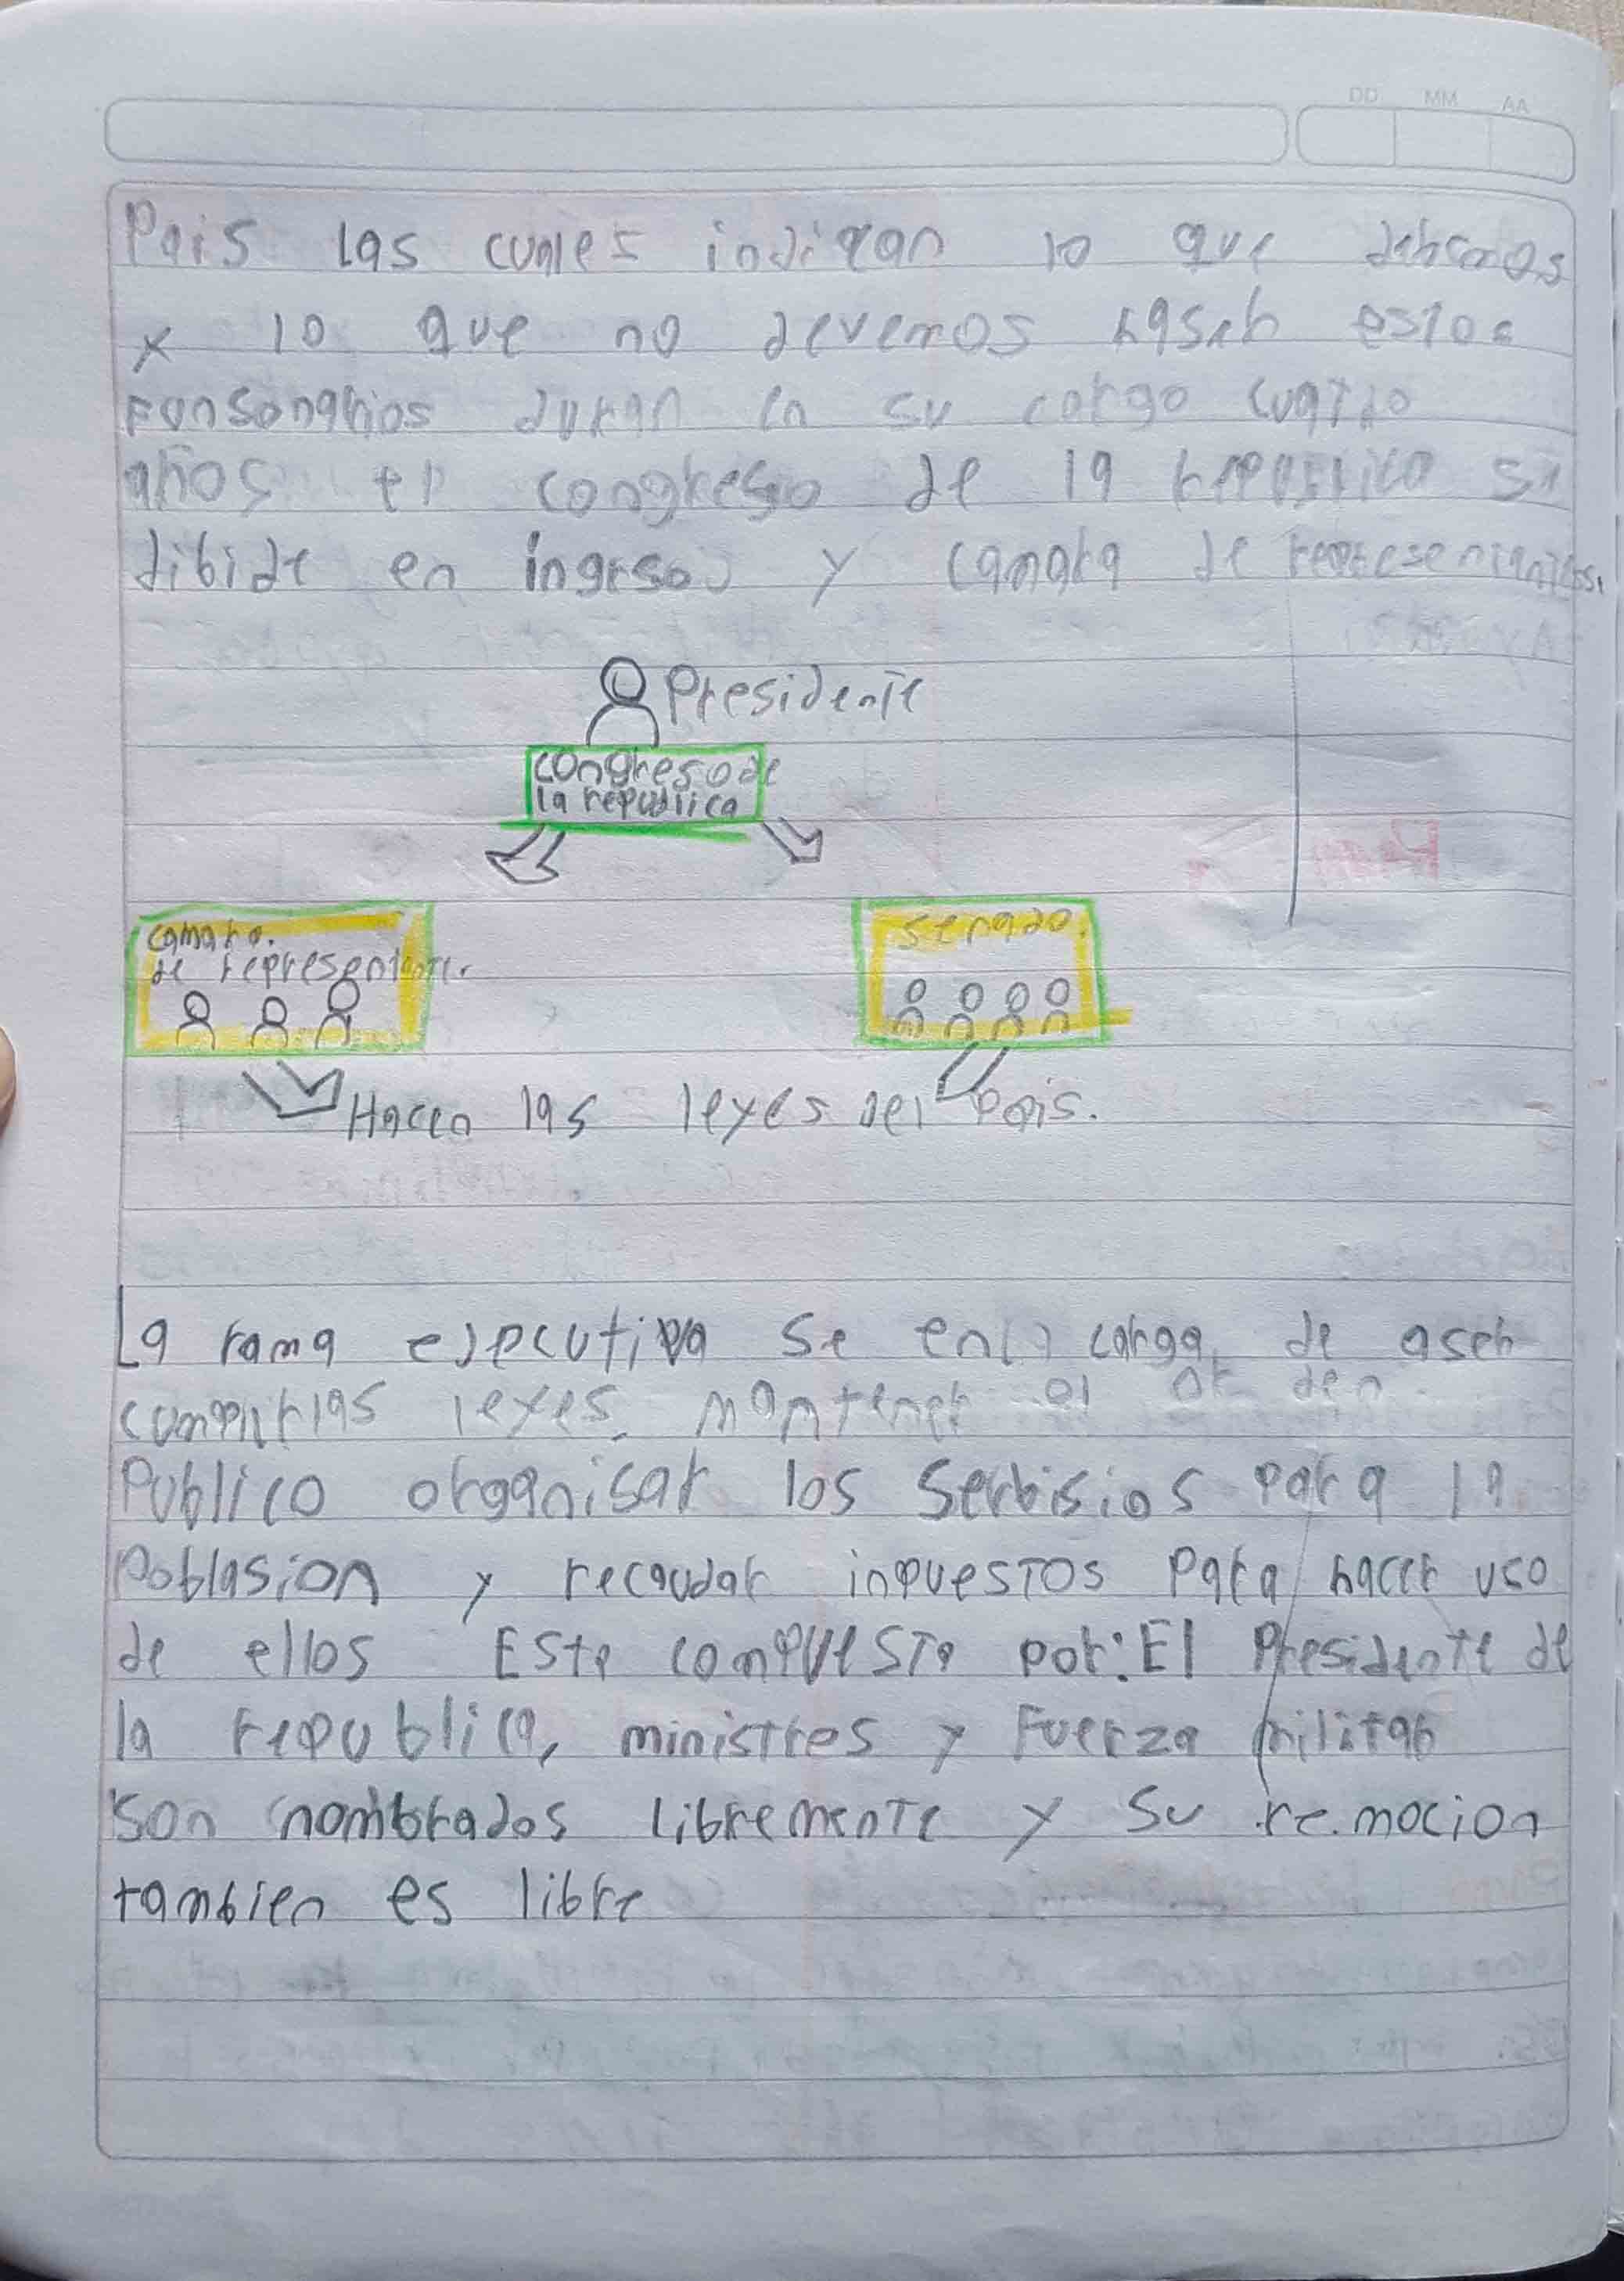 DD MM AA
Pais las cuales indican lo que debemos
y lo que no devemos haseh estos
Funsonarios duran en su cargo cuatro
años el congreso de la republica se
dibide en ingreso y camara de representantes.
Presidente
congreso de
la republica
camara.
de representante.
senado.
Hacen las leyes del Pais.
La rama ejecutiva se en carga de aseh
complir las leyes, mantener el or den
Publico organisar los Serbisios para la
Poblasion y recaudar inpuestos para hacer uso
de ellos Esta compuesta por: El Presidente de
la republica, ministros y Fuerza militar
son nombrados libremente y su remocion
tambien es libre